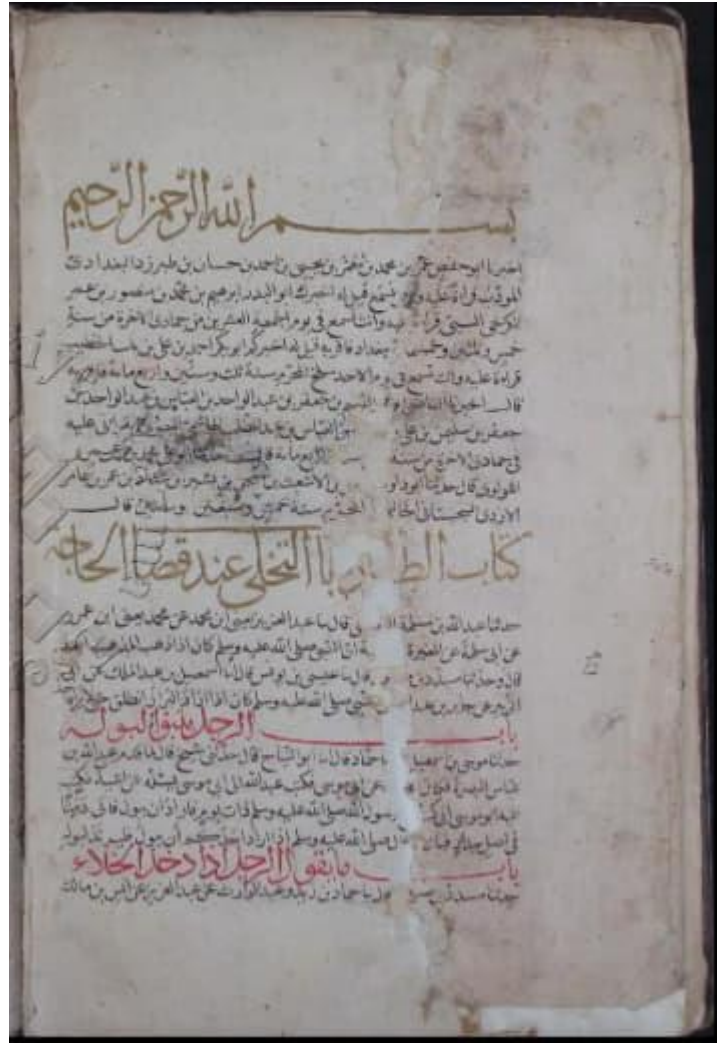 بسم الله الرحمن الرحيم
اخبرنا ابو حفص عمر بن محمد بن معمر بن يحيى بن احمد بن حسان بن طبرزد البغدادي
المودب قراة عليه وانا اسمع قيل له اخبرك ابو البدر ابرهيم بن محمد بن منصور بن عمر
الكرخي قراة عليه وانت تسمع في يوم الجمعة العشرين من جمادى الاخرة من سنة
خمس وثلثين وخمس بغداد فاقر به قيل له اخبركم ابو بكر احمد بن علي بن ثابت الخطيب
قراة عليه وانت تسمع في يوم الاحد سلخ المحرم سنة ثلث وستين واربع ماية فاقر به
قال اخبرنا القاضي ابو القسم بن جعفر بن عبد الواحد بن العباس بن عبد الواحد بن
جعفر بن سليمن بن علي بن العباس بن عبد المطلب الهاشمي عليه
في جمادى الاخرة من سنة اربع ماية قال ابو علي محمد بن
اللولوي قال حدثنا ابو داود بن الاشعث بن بشير بن شداد بن عمر بن عامر
الازدي السجستاني المحرم سنة خمس وسبعين ومايتين قال
كتاب الط باب التخلي عند قضا الحاجة
حدثنا عبد الله بن مسلمة قال نا عبد العزيز يعني ابن محمد عن محمد يعني ابن عمرو
عن ابي سلمة عن المغيرة بة ان النبي صلى الله عليه وسلم كان اذا ذهب المذهب ابعد
قال وحدثنا مسدد بن قال نا عيسى بن يونس قال نا اسمعيل بن عبد الملك عن ابي
الزبير عن جابر بن عبد النبي صلى الله عليه وسلم كان اذا اراد البراز انطلق حتى
باب الرجل يتبوا لبوله
حدثنا موسى بن اسمعيل نا حماد قال نا ابو التياح قال حدثني شيخ قال لما قدم عبد الله بن
عباس البصرة فكان عن ابي موسى فكتب عبد الله الى ابي موسى يسئله عن اشيا فكتب
اليه ابو موسى اني كنت رسول الله صلى الله عليه وسلم ذات يوم فاراد ان يبول فاتى دمثا
في اصل جدار فبال قال صلى الله عليه وسلم اذا اراد احدكم ان يبول لبوله
باب ما يقول الرجل اذا دخل الخلاء
حدثنا مسدد بن قال نا حماد بن زيد وعبد الوارث عن عبد العزيز عن انس بن مالك